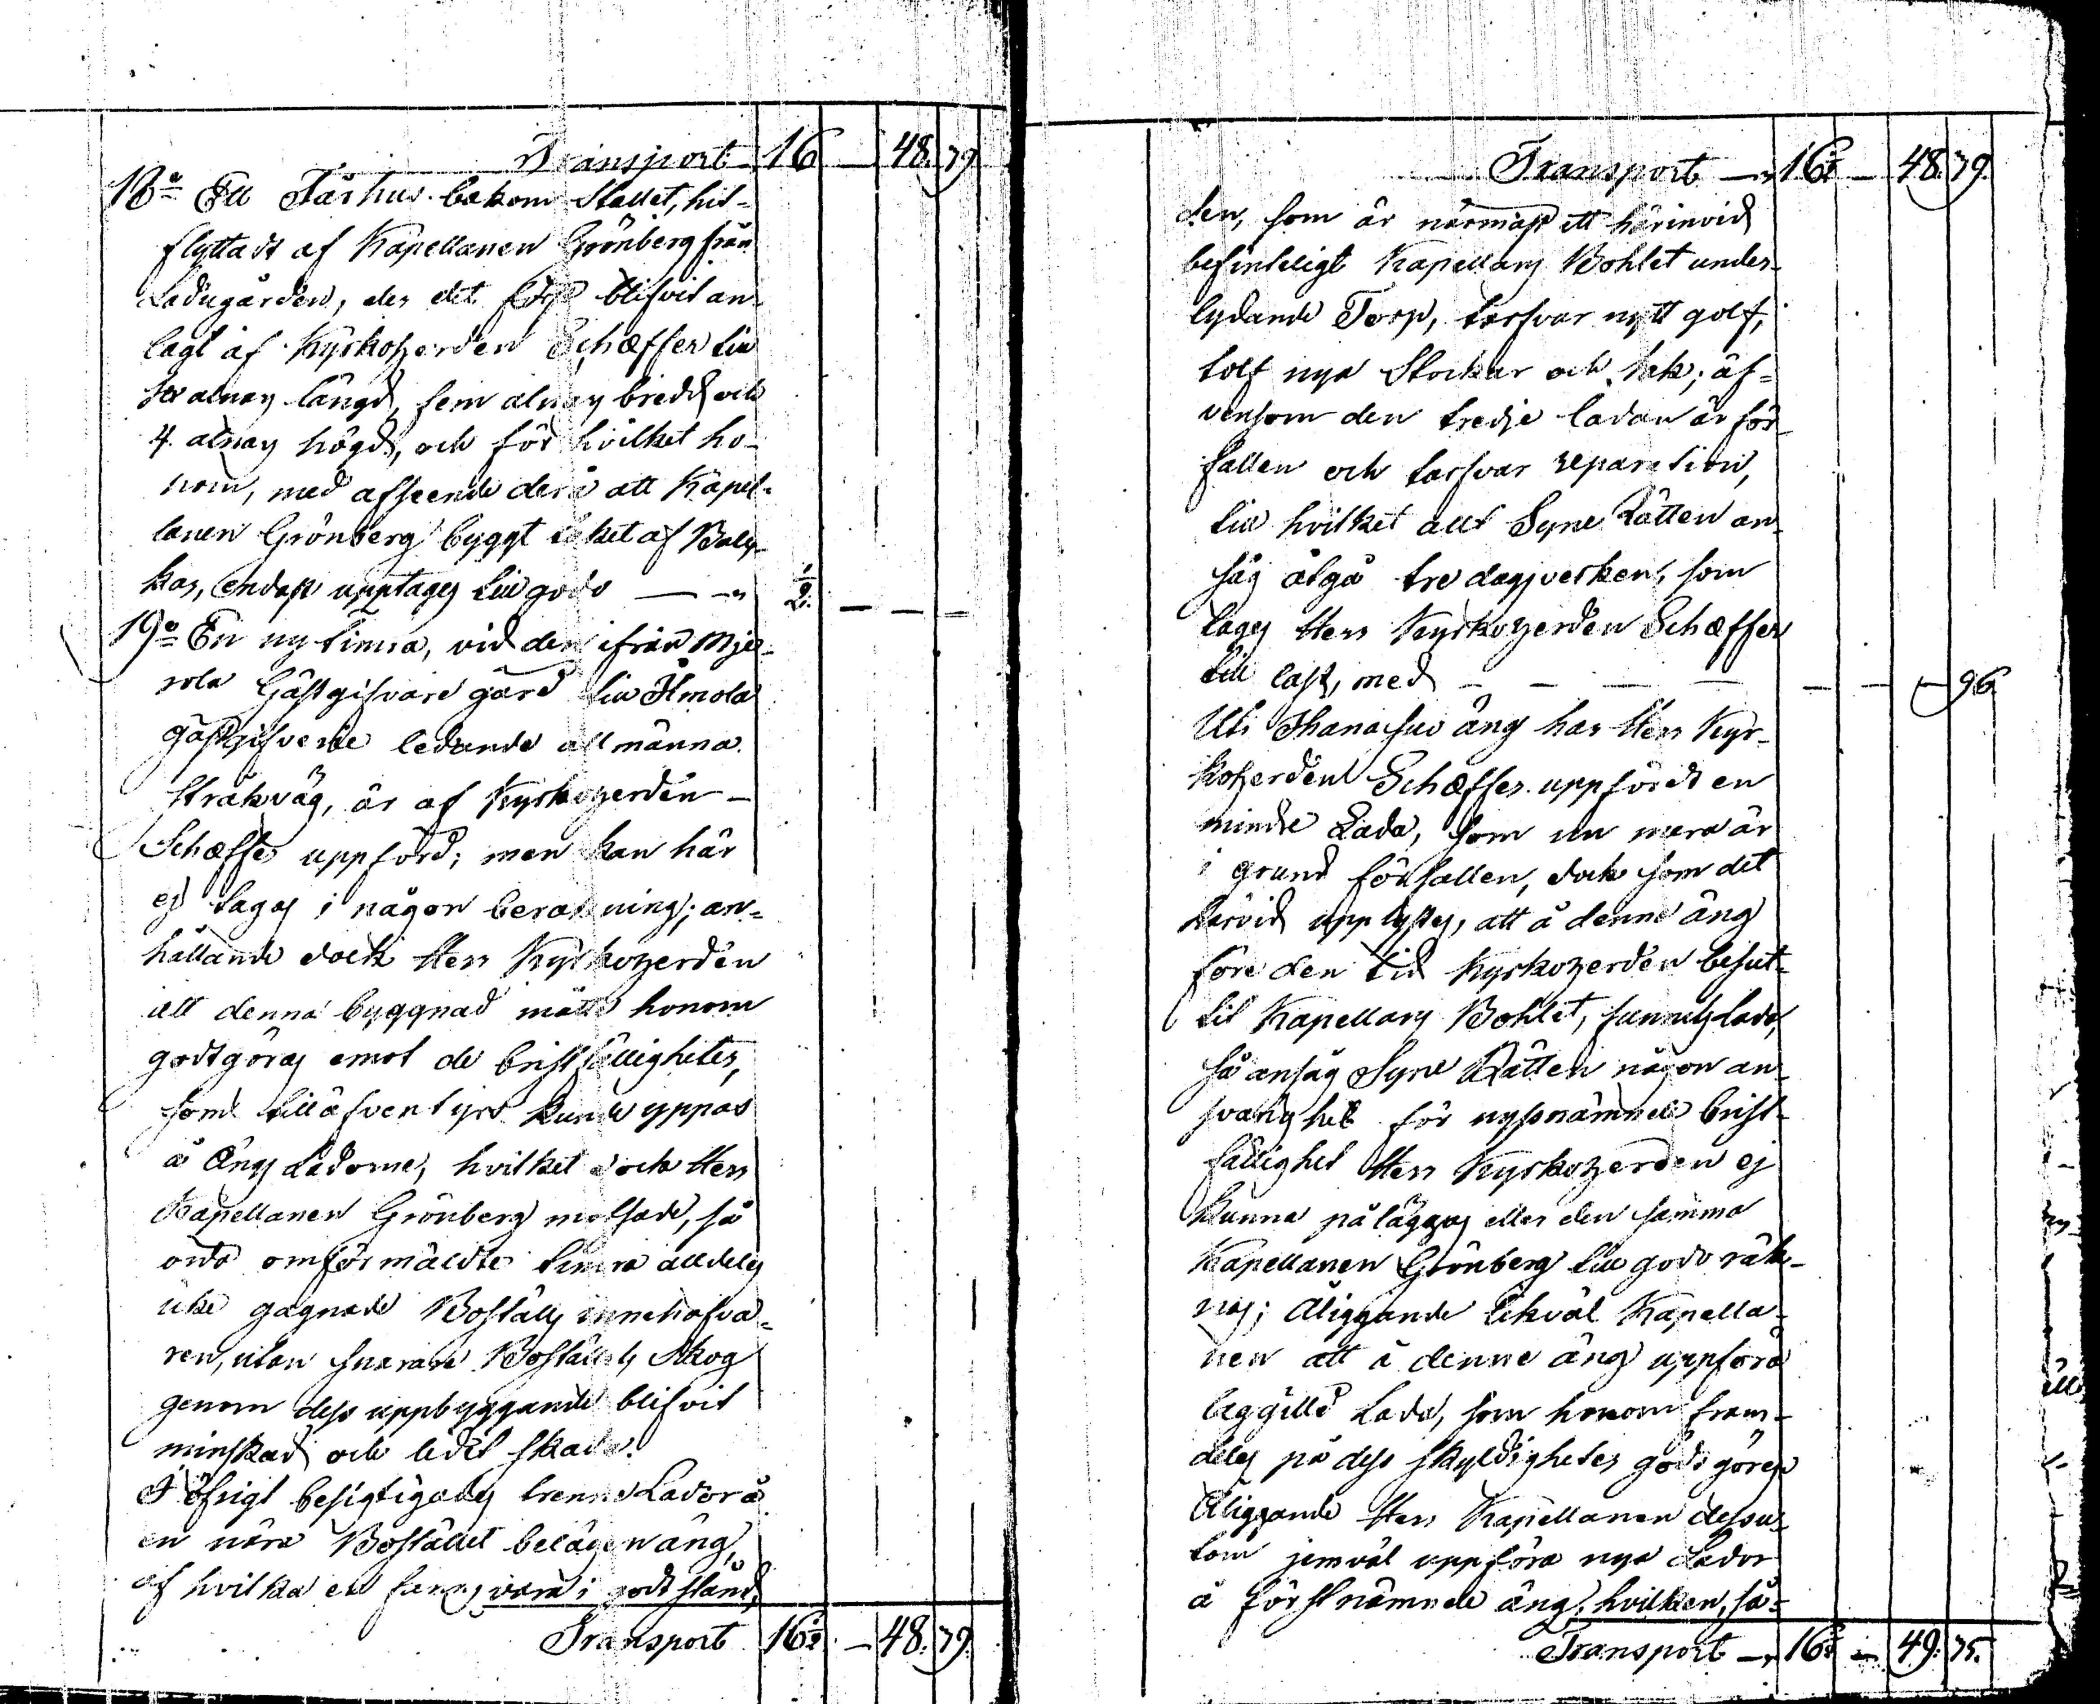 Transport 16 — 48. 79.
18:o Ett Fårhus bakom Stallet, hit-
flyttadt af Kapellanen Grönberg från
Ladugården, der det först blifvit an-
lagt af Kyrkoherden Schæffer till
sex alnars längd, fem alnars bredd och
4. alnars högd, och för hvilket ho-
nom, med afseende derå att Kapel-
lanen Grönberg byggt taket af Balc-
kar, endast upptages till godo — " ½.
19:o En ny Timra, vid den ifrån Mje-
rola Gästgifvare gård till Ilmola
gästgifveri ledande allmänna
stråkväg, är af Kyrkoherden —
Schæffer uppförd; men kan här
ej tagas i någon beräkning; an-
hållande dock Herr Kyrkoherden
att denna byggnad måtte honom
godtgöras emot de bristfälligheter,
som tilläfventyrs kunde yppas
å Ängs Ladorne, hvilket dock Herr
Kapellanen Grönberg motsade, så
ofta omförmäldte Timra alldeles
icke gagnade Boställs innehafva-
ren, utan snarare Boställets Skog
genom dess uppbyggande blifvit
minskad och lidit skada.
I öfrigt besigtigades trenne Lador å
en nära Bostället belägen äng,
af hvilka en fanns vara i godt stånd,
Transport 16½. — 48. 79.
Transport — " 16½ — 48. 79.
den, som är närmast ett härinvid
befinteligt Kapellans Bohlet under-
lydande Torp, tarfvar nytt golf,
tolf nya Stockar och tak; äf-
vensom den tredje ladan är för-
fallen och tarfvar reparation,
till hvilket allt Syne Rätten an-
såg åtgå tre dagsverken, som
tages Herr Kyrkoherden Schæffer
till last, med — — — — — — — 96
Uti Ihanasuo äng har Herr Kyr-
koherden Schæffer uppfördt en
mindre Lada, som nu mera är
i grund förfallen, dock som det
härvid upplystes, att å denne äng
före den tid Kyrkoherden besut-
tit Kapellans Bohlet, funnits lada,
så ansåg Syne Rätten någon an-
svarighet för nyssnämnde brist-
fällighet Herr Kyrkoherden ej
kunna påläggas eller den samma
Kapellanen Grönberg till godo räk-
nas; Åliggande likväl Kapella-
nen att å denne äng uppföra
laggilld Lada, som honom fram-
deles på dess skyldigheter godtgöres
Åliggande Herr Kapellanen dessu-
tom jemväl uppföra nya Lador
å förstnämnde äng, hvilken, så-
Transport — " 16½ — 49. 75.